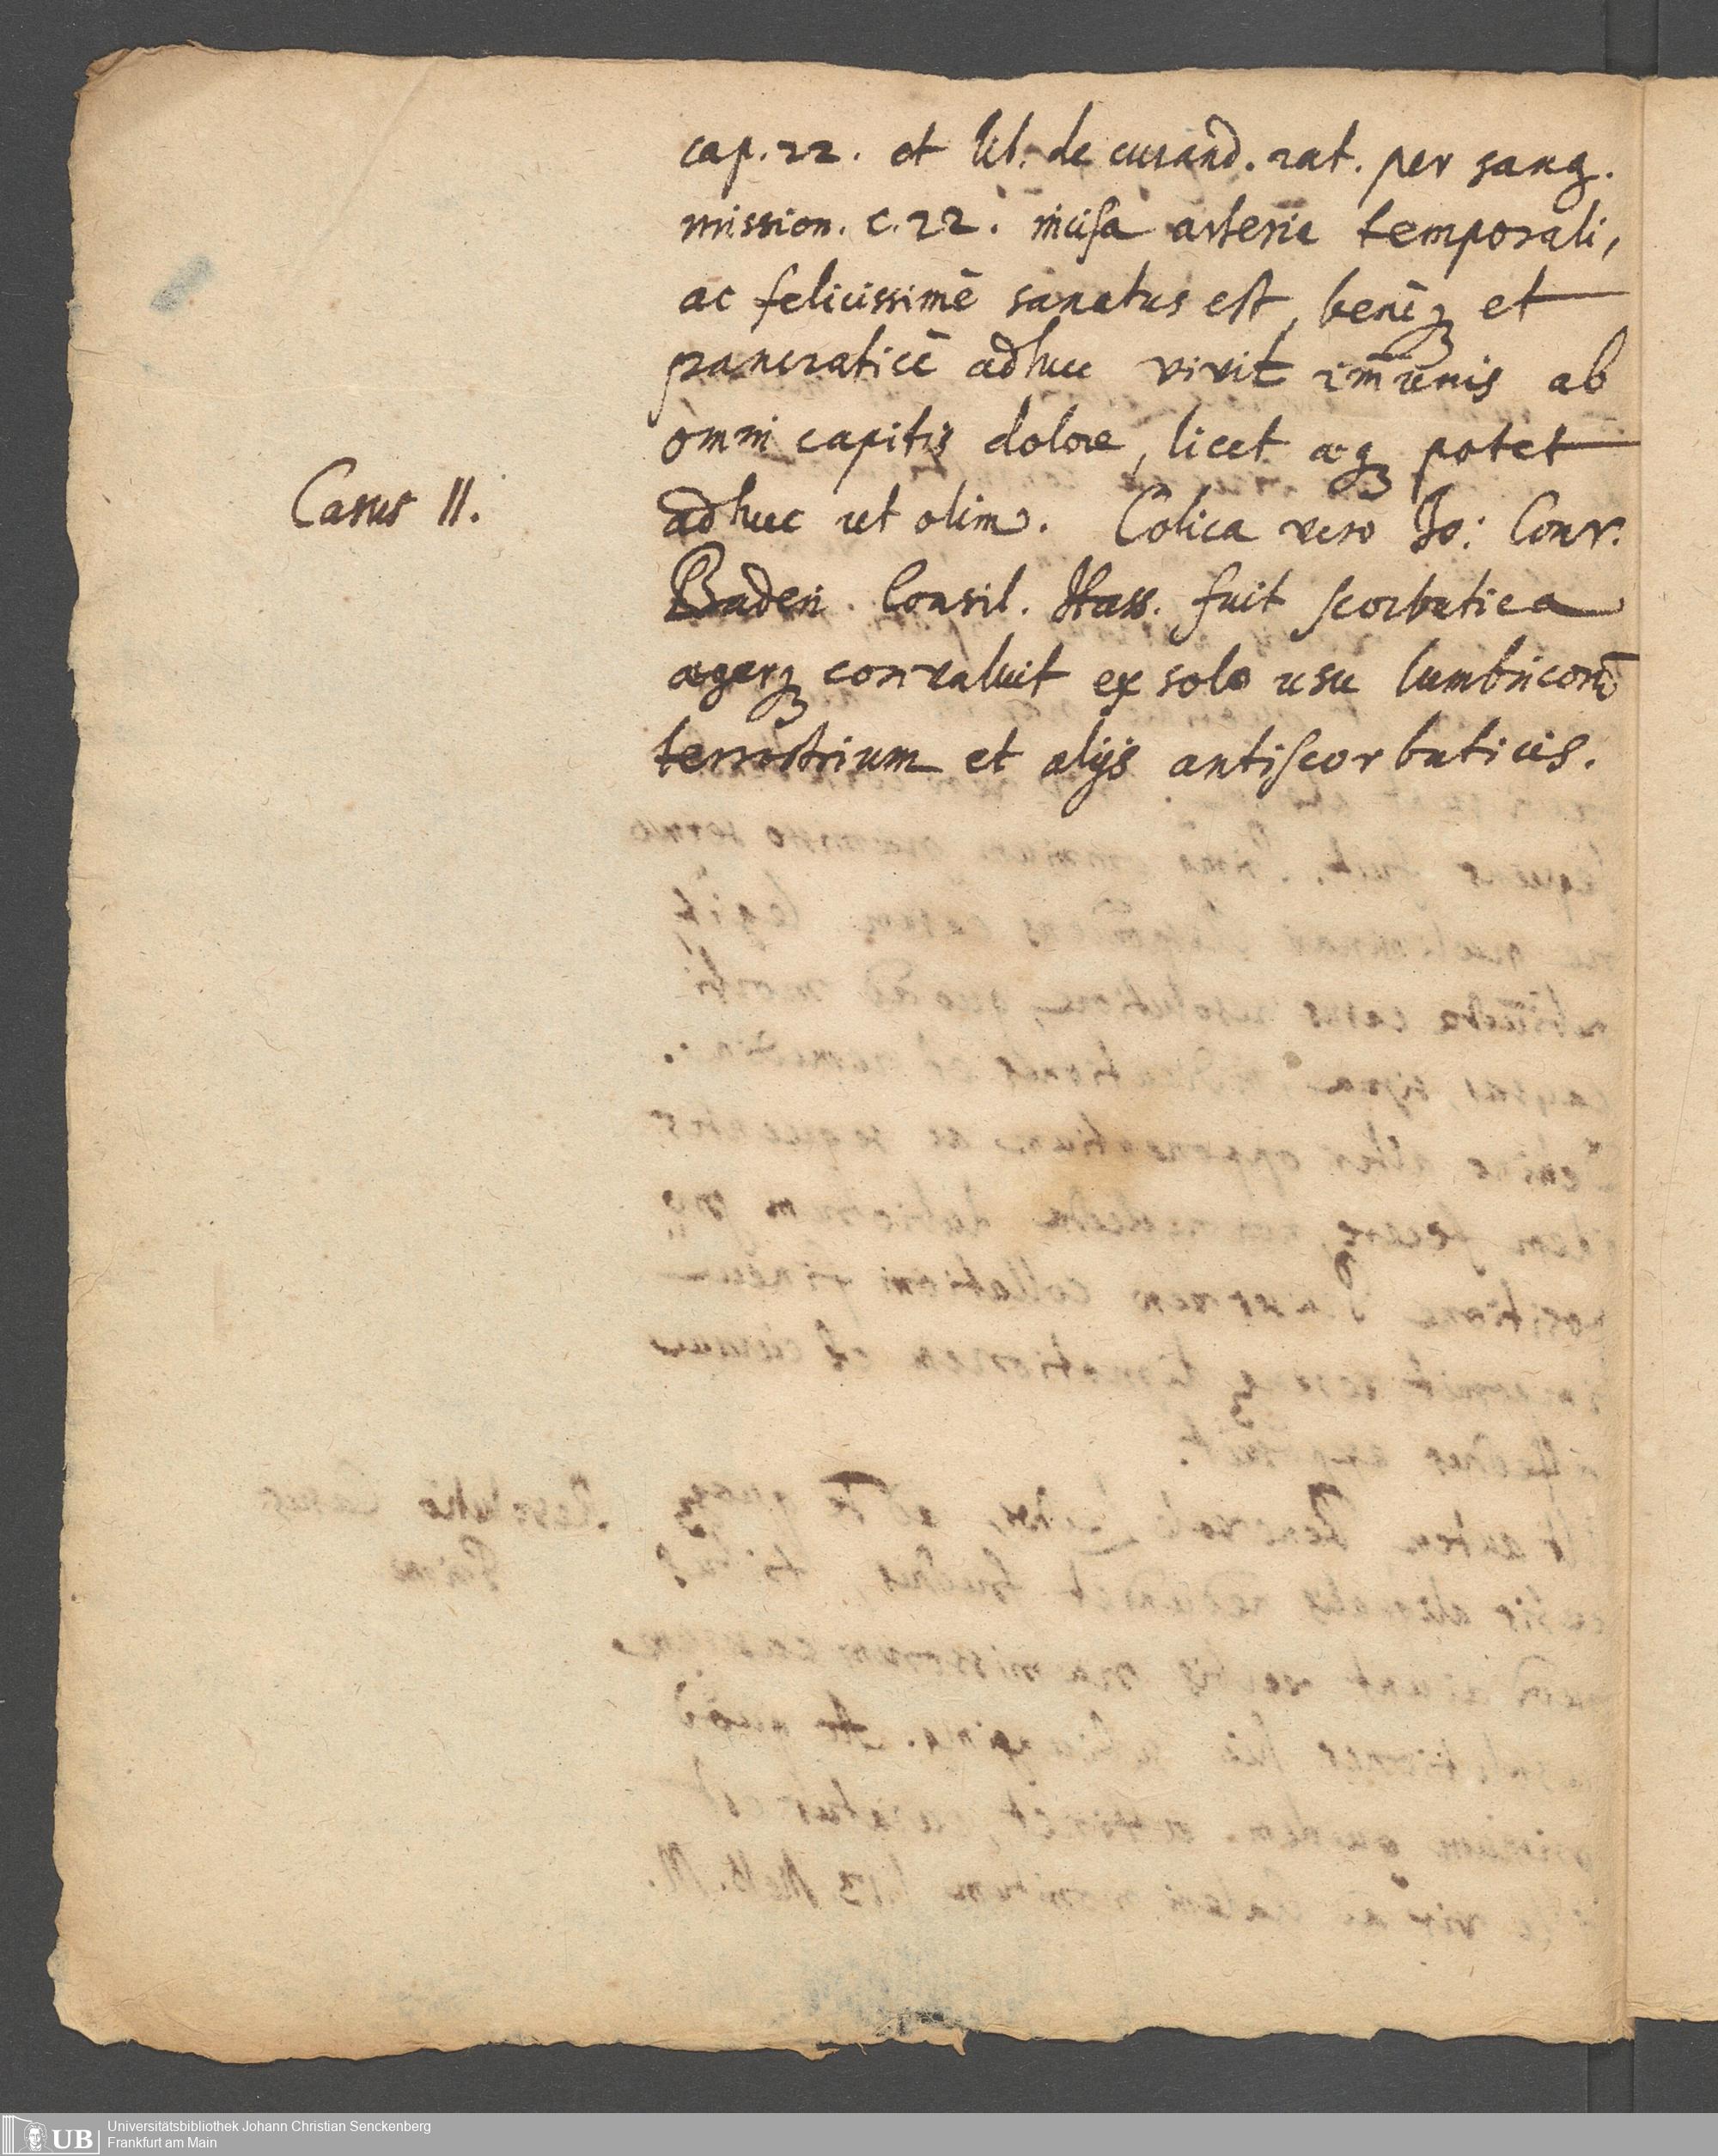 cap. 22. et lib. de curand. rat. per sang.
mission. c. 22. incisa arteria temporali,
ac felicissimè sanatus est, beneq; et
pancraticè adhuc vivit im̄unis ab
omni capitis dolore, licet æq; potet
Casus II.
adhuc ut olim. Colica vero Jo: Conr.
Baden. Consil. Hass. fuit scorbutica
ægerq; convaluit ex solo usu lumbricorū
terrestrium et alijs antiscorbuticis.
UB Universitätsbibliothek Johann Christian Senckenberg
Frankfurt am Main